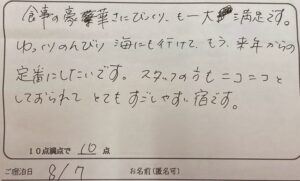 食事の豪華さにびっくり、も一大満足です。
ゆっくりのんびり海にも行けて、もう、来年からの
定番にしたいです。スタッフの方もニコニコと
しておられてとてもすごしやすい宿です。
10点満点で 10 点
ご宿泊日 8/7 お名前(匿名可)